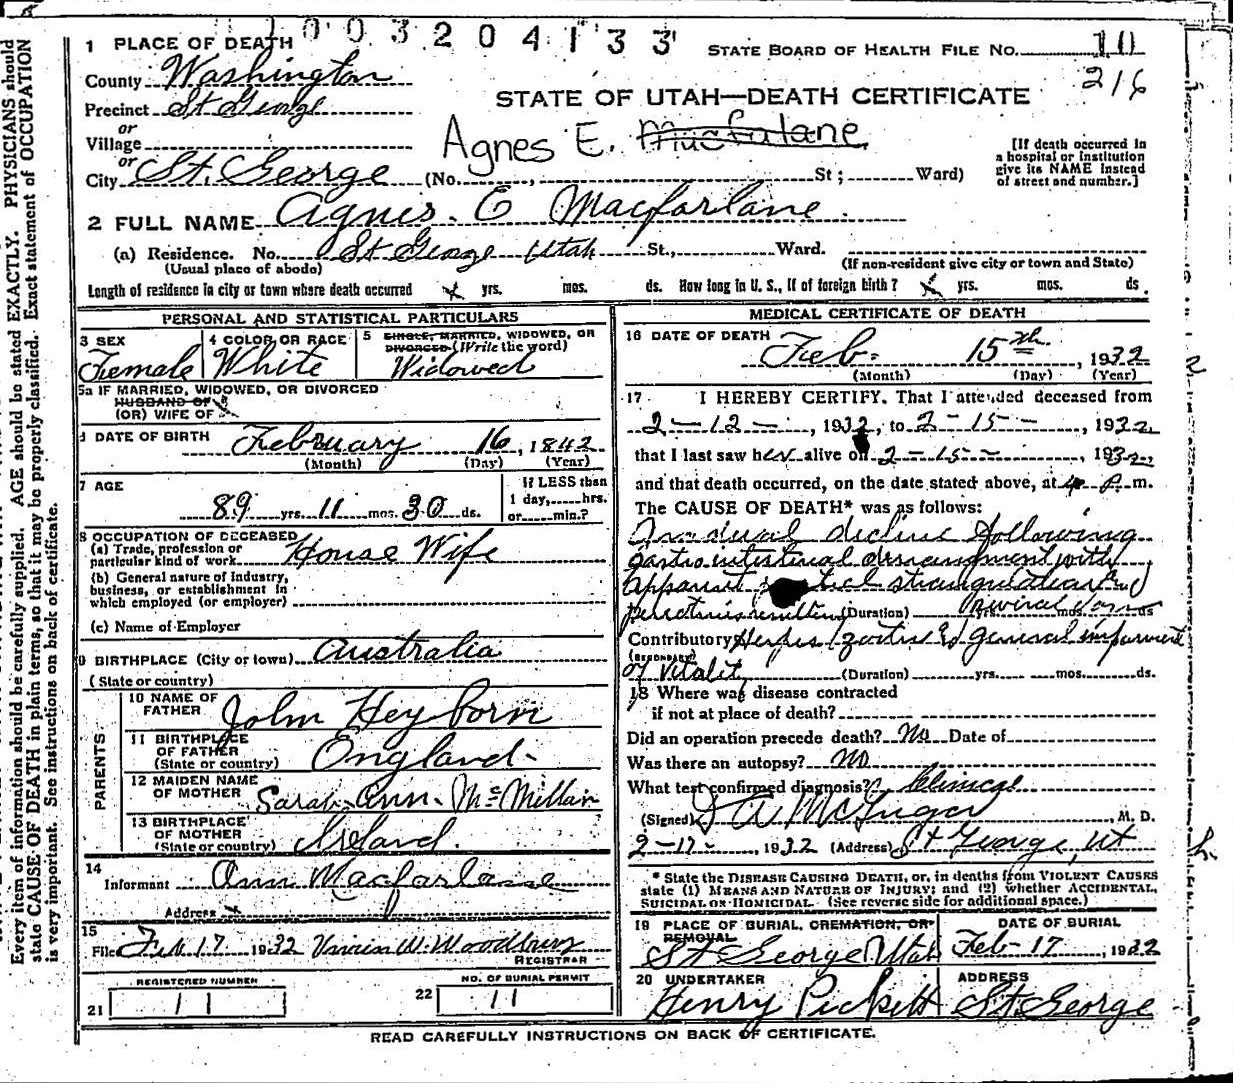 0032041 33
STATE BOARD OF HEALTH FILE NO. 10
216
1 PLACE OF DEATH
County Washington
Precinct St George
STATE OF UTAH—DEATH CERTIFICATE
or
Village
Agnes E. Macfalane
or
City St. George (No. , St ; Ward)
[If death occurred in
a hospital or institution
give its NAME instead
of street and number.]
2 FULL NAME Agnes. E Macfarlane.
(a) Residence. No. St George Utah St., Ward.
(Usual place of abode) (If non-resident give city or town and State)
Length of residence in city or town where death occurred x yrs. mos. ds. How long in U. S., if of foreign birth? x yrs. mos. ds.
PERSONAL AND STATISTICAL PARTICULARS
3 SEX Female
4 COLOR OR RACE White
5 SINGLE, MARRIED, WIDOWED, OR
DIVORCED (Write the word)
Widowed
5a IF MARRIED, WIDOWED, OR DIVORCED
HUSBAND OF
(OR) WIFE OF
DATE OF BIRTH February 16, 1842
(Month) (Day) (Year)
7 AGE
89 yrs. 11 mos. 30 ds.
If LESS than
1 day,.....hrs.
or......min.?
8 OCCUPATION OF DECEASED
(a) Trade, profession or
particular kind of work House Wife
(b) General nature of industry,
business, or establishment in
which employed (or employer)
(c) Name of Employer
9 BIRTHPLACE (City or town) Australia
(State or country)
PARENTS
10 NAME OF
FATHER John Heyborn
11 BIRTHPLACE
OF FATHER England
(State or country)
12 MAIDEN NAME
OF MOTHER Sarah Ann McMillan
13 BIRTHPLACE
OF MOTHER
(State or country) Ireland.
14
Informant Ann Macfarlane
Address x
15
File Feb 17 1932 W. Woodbury
REGISTRAR
REGISTERED NUMBER
21 11
NO. OF BURIAL PERMIT
22 11
MEDICAL CERTIFICATE OF DEATH
16 DATE OF DEATH
Feb. 15th, 1932
(Month) (Day) (Year)
17 I HEREBY CERTIFY, That I attended deceased from
2-12-, 1932, to 2-15-, 1932,
that I last saw her alive on 2-15-, 1932,
and that death occurred, on the date stated above, at 4 P. m.
The CAUSE OF DEATH* was as follows:
Gradual decline following
gastrointestinal derangement with
apparent strangulation and
peritonitis resulting (Duration) yrs. several mos. days ds
Contributory Herpes zoster & general impairment
(SECONDARY)
of vitality (Duration) yrs. mos. ds.
18 Where was disease contracted
if not at place of death?
Did an operation precede death? No Date of
Was there an autopsy? no
What test confirmed diagnosis? Clinical
(Signed) M. D.
2-17-, 1932 (Address) St George, Ut
* State the DISEASE CAUSING DEATH, or, in deaths from VIOLENT CAUSES
state (1) MEANS AND NATURE OF INJURY; and (2) whether ACCIDENTAL,
SUICIDAL OR HOMICIDAL. (See reverse side for additional space.)
19 PLACE OF BURIAL, CREMATION, OR
REMOVAL
St George Utah
DATE OF BURIAL
Feb-17, 1932
20 UNDERTAKER
Henry Pickett
ADDRESS
St George
READ CAREFULLY INSTRUCTIONS ON BACK OF CERTIFICATE.
Every item of information should be carefully supplied. AGE should be stated EXACTLY. PHYSICIANS should
state CAUSE OF DEATH in plain terms, so that it may be properly classified. Exact statement of OCCUPATION
is very important. See instructions on back of certificate.